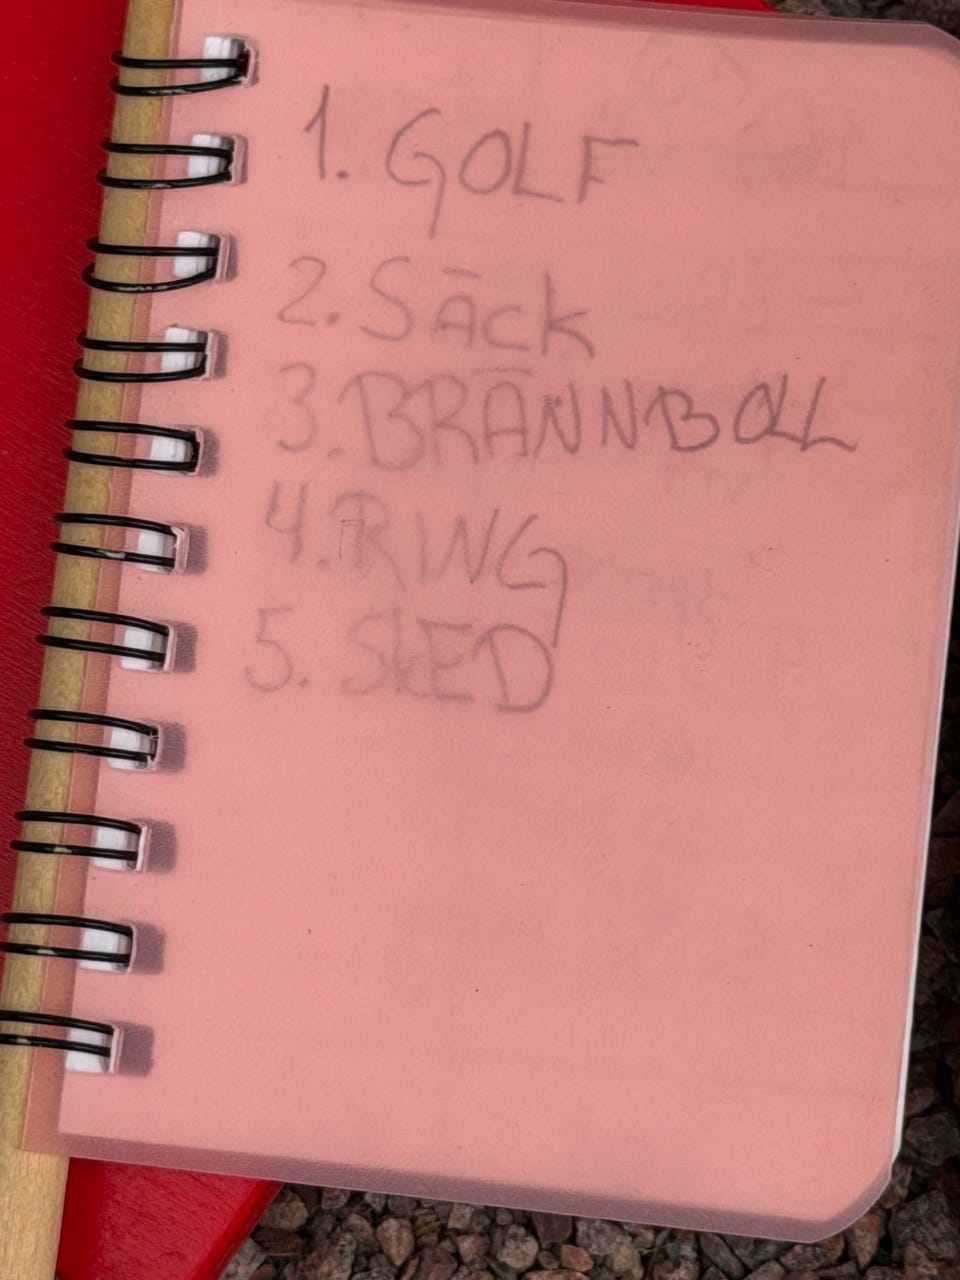 1. GOLF
2. SÄCK
3. BRÄNNBOLL
4. RING
5. SKED